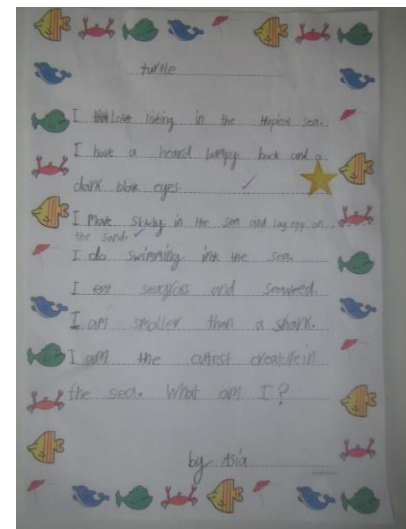 turtle
I Love living in the tropical sea.
I have a heard lumpy back and a
dark blak eyes.
I move slucly in the sea and lag egg on
the sand.
I do swimming ink the sea.
I eat seagrass and seaweed.
I am smaller than a shark.
I am the cutest creature in
the sea. What am I?
by Asia